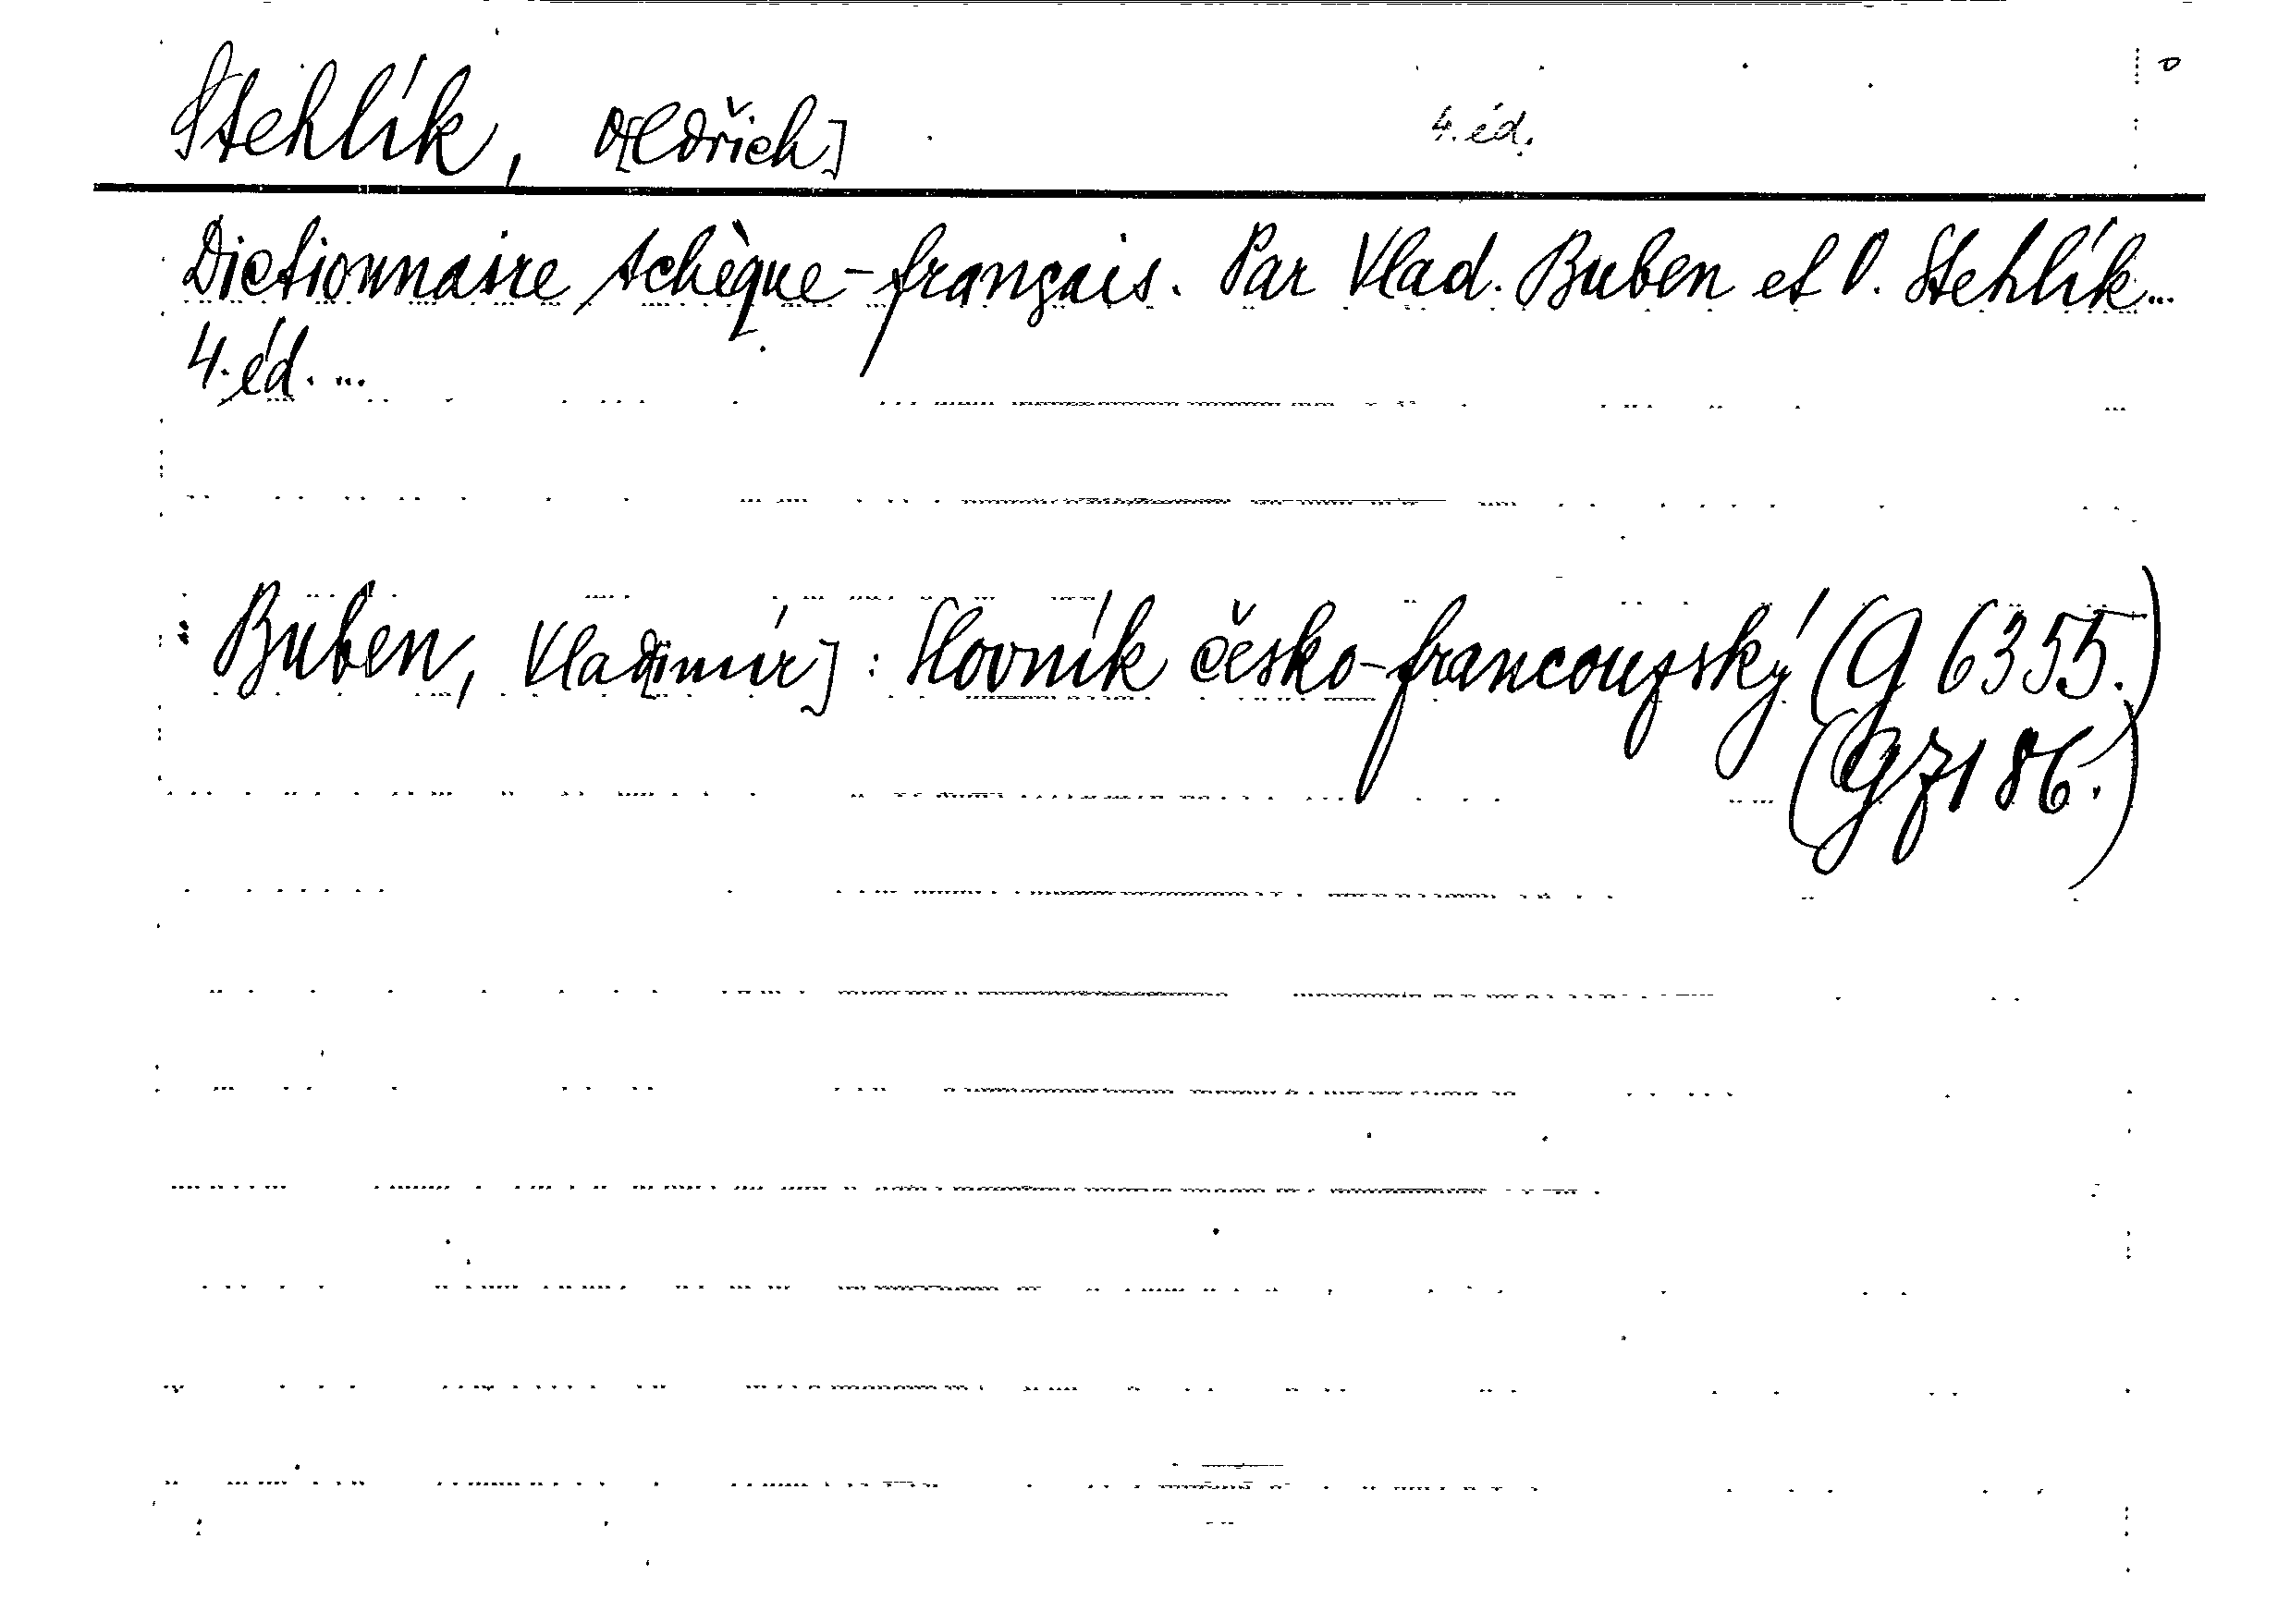 Stehlík, O[ldřich] 4. éd.
Dictionnaire tchèque-français. Par Vlad. Buben et O. Stehlík...
4. éd. ...
: Buben, Vlad[imír] : Slovník česko-francouzský (G 6355.)
(G 7186.)